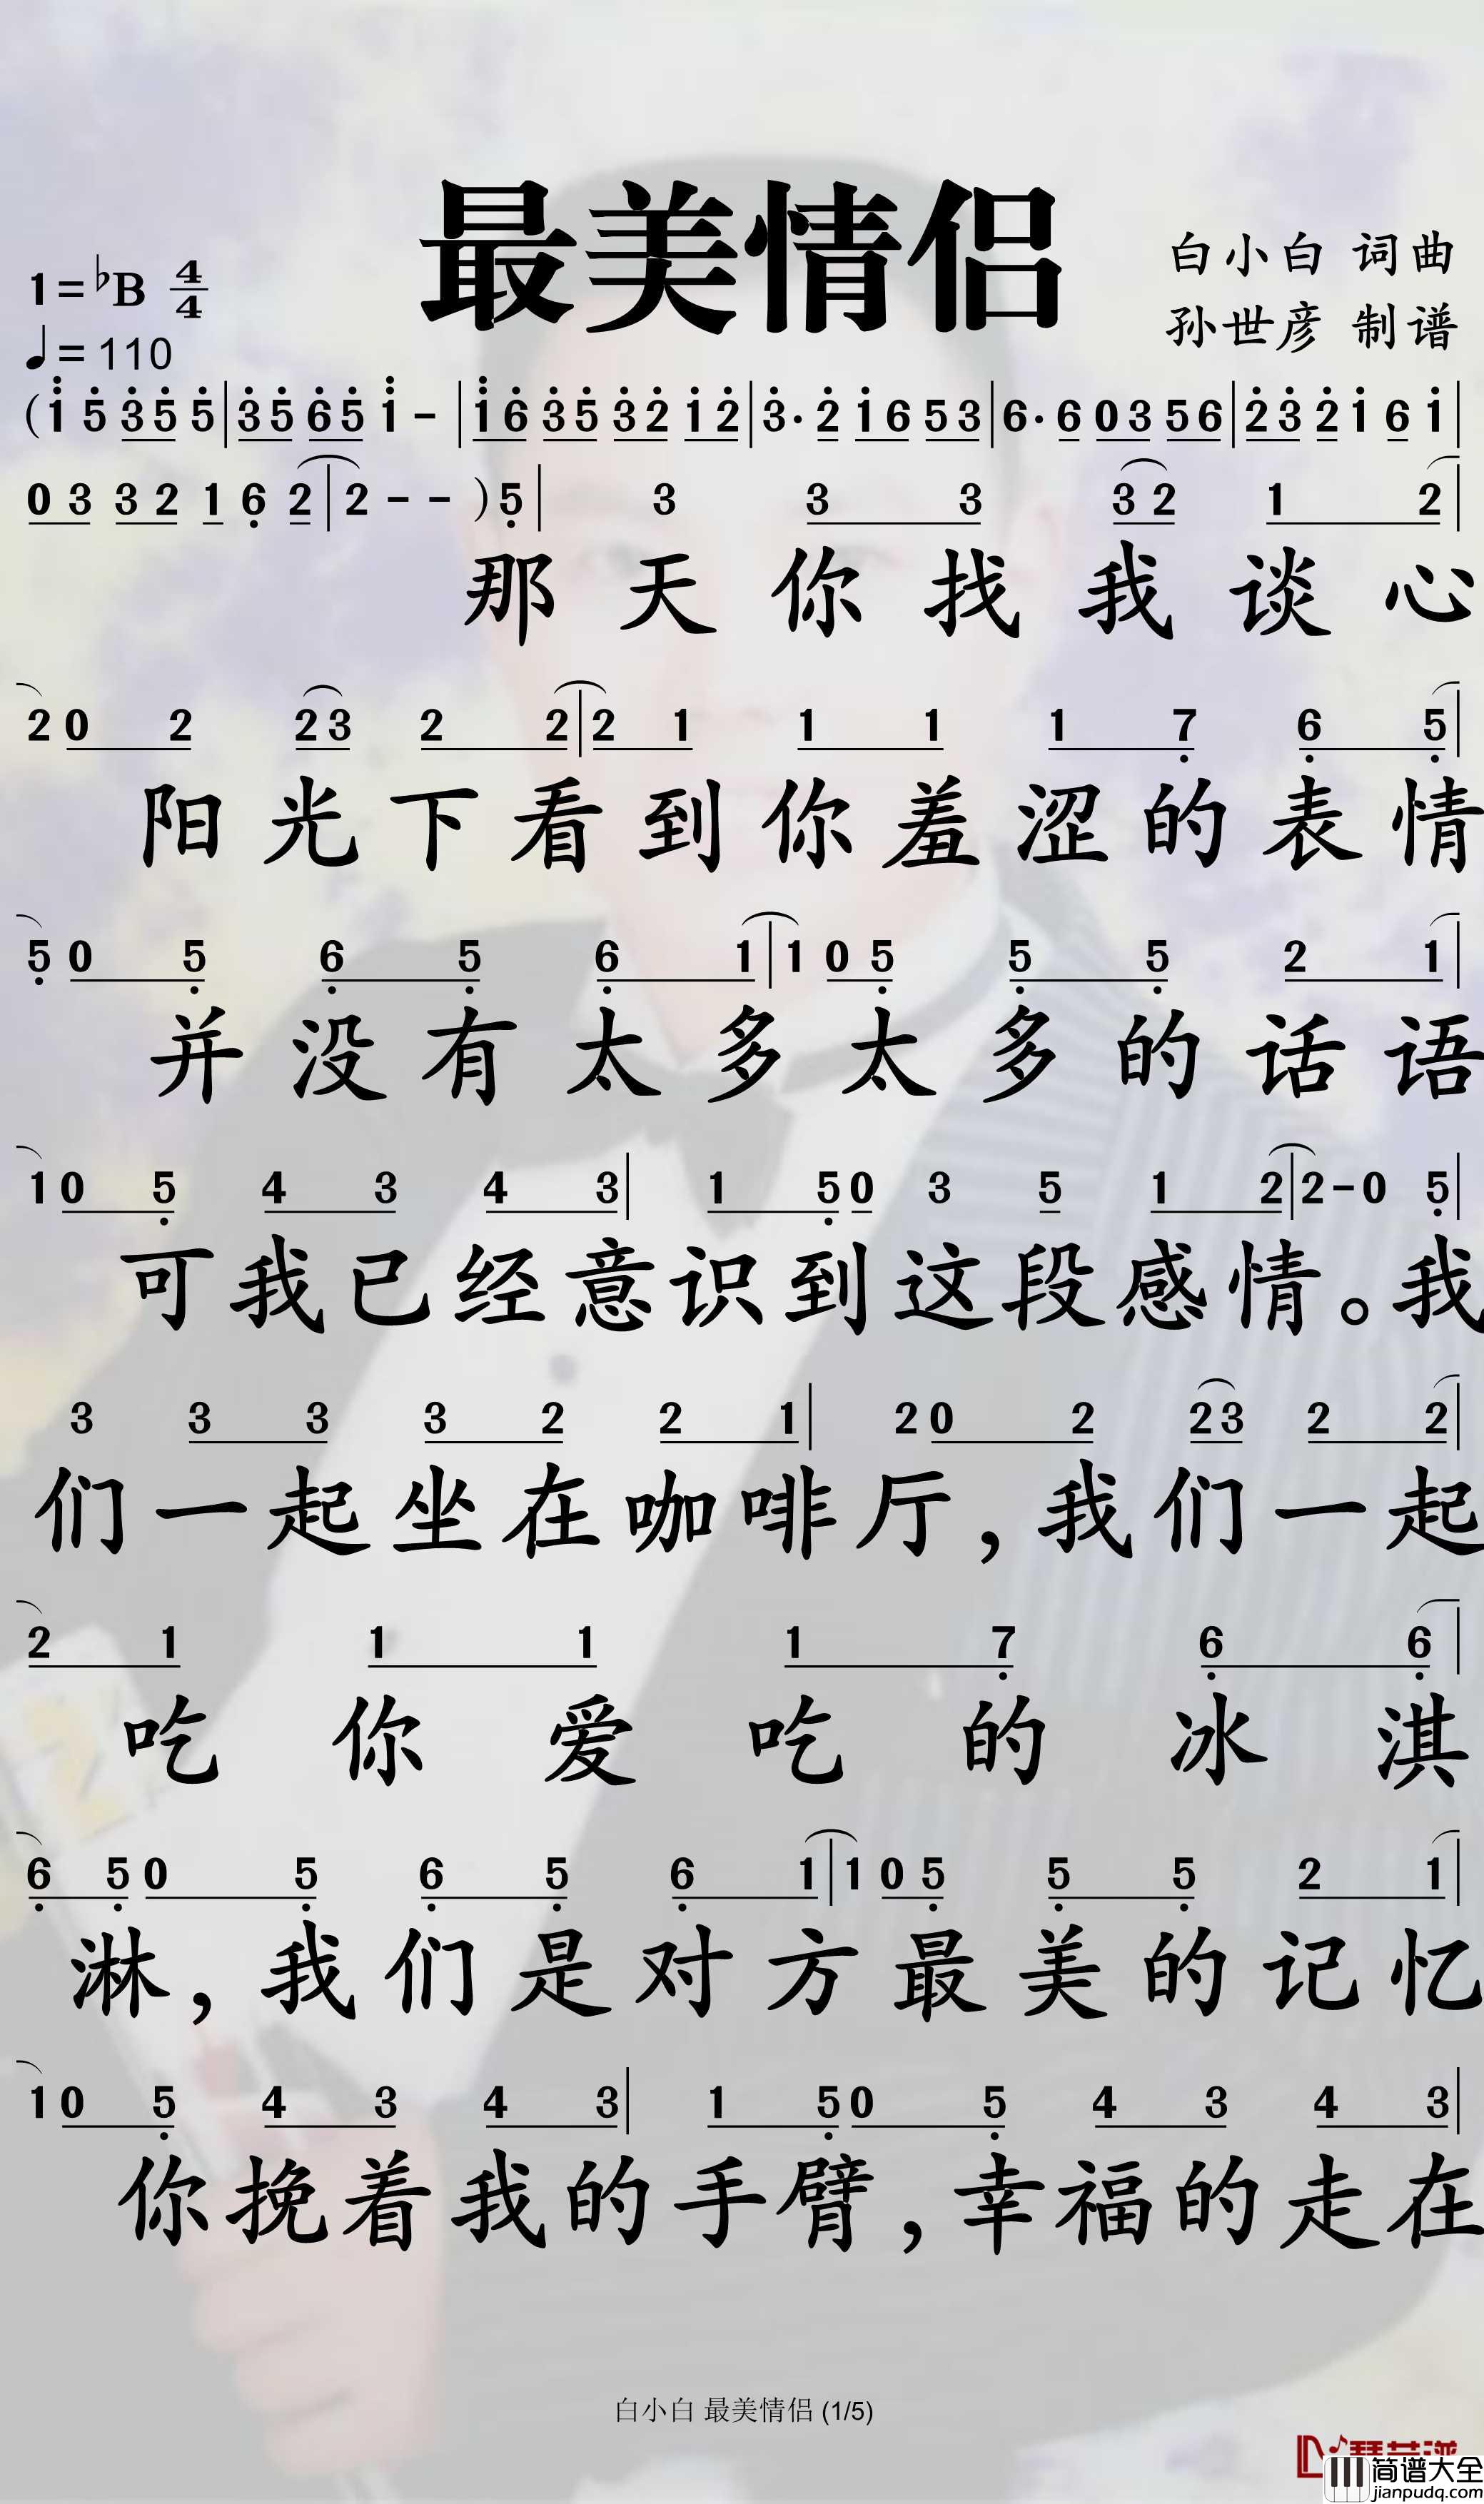 最美情侣
白小白 词曲
孙世彦 制谱
1=♭B 4/4
♩=110
(1 5 3 5 5 | 3 5 6 5 1 - | 1 6 3 5 3 2 1 2 | 3· 2 1 6 5 3 | 6· 6 0 3 5 6 | 2 3 2 1 6 1 |
0 3 3 2 1 6 2 | 2 - - ) 5 | 3 3 3 3 2 1 2 |
那天你找我谈心
2 0 2 2 3 2 2 | 2 1 1 1 1 7 6 5 |
阳光下看到你羞涩的表情
5 0 5 6 5 6 1 | 1 0 5 5 5 2 1 |
并没有太多太多的话语
1 0 5 4 3 4 3 | 1 5 0 3 5 1 2 | 2 - 0 5 |
可我已经意识到这段感情。我
3 3 3 3 2 2 1 | 2 0 2 2 3 2 2 |
们一起坐在咖啡厅,我们一起
2 1 1 1 1 7 6 6 |
吃你爱吃的冰淇
6 5 0 5 6 5 6 1 | 1 0 5 5 5 2 1 |
淋,我们是对方最美的记忆
1 0 5 4 3 4 3 | 1 5 0 5 4 3 4 3 |
你挽着我的手臂,幸福的走在
白小白 最美情侣 (1/5)
简谱大全
jianpudq.com